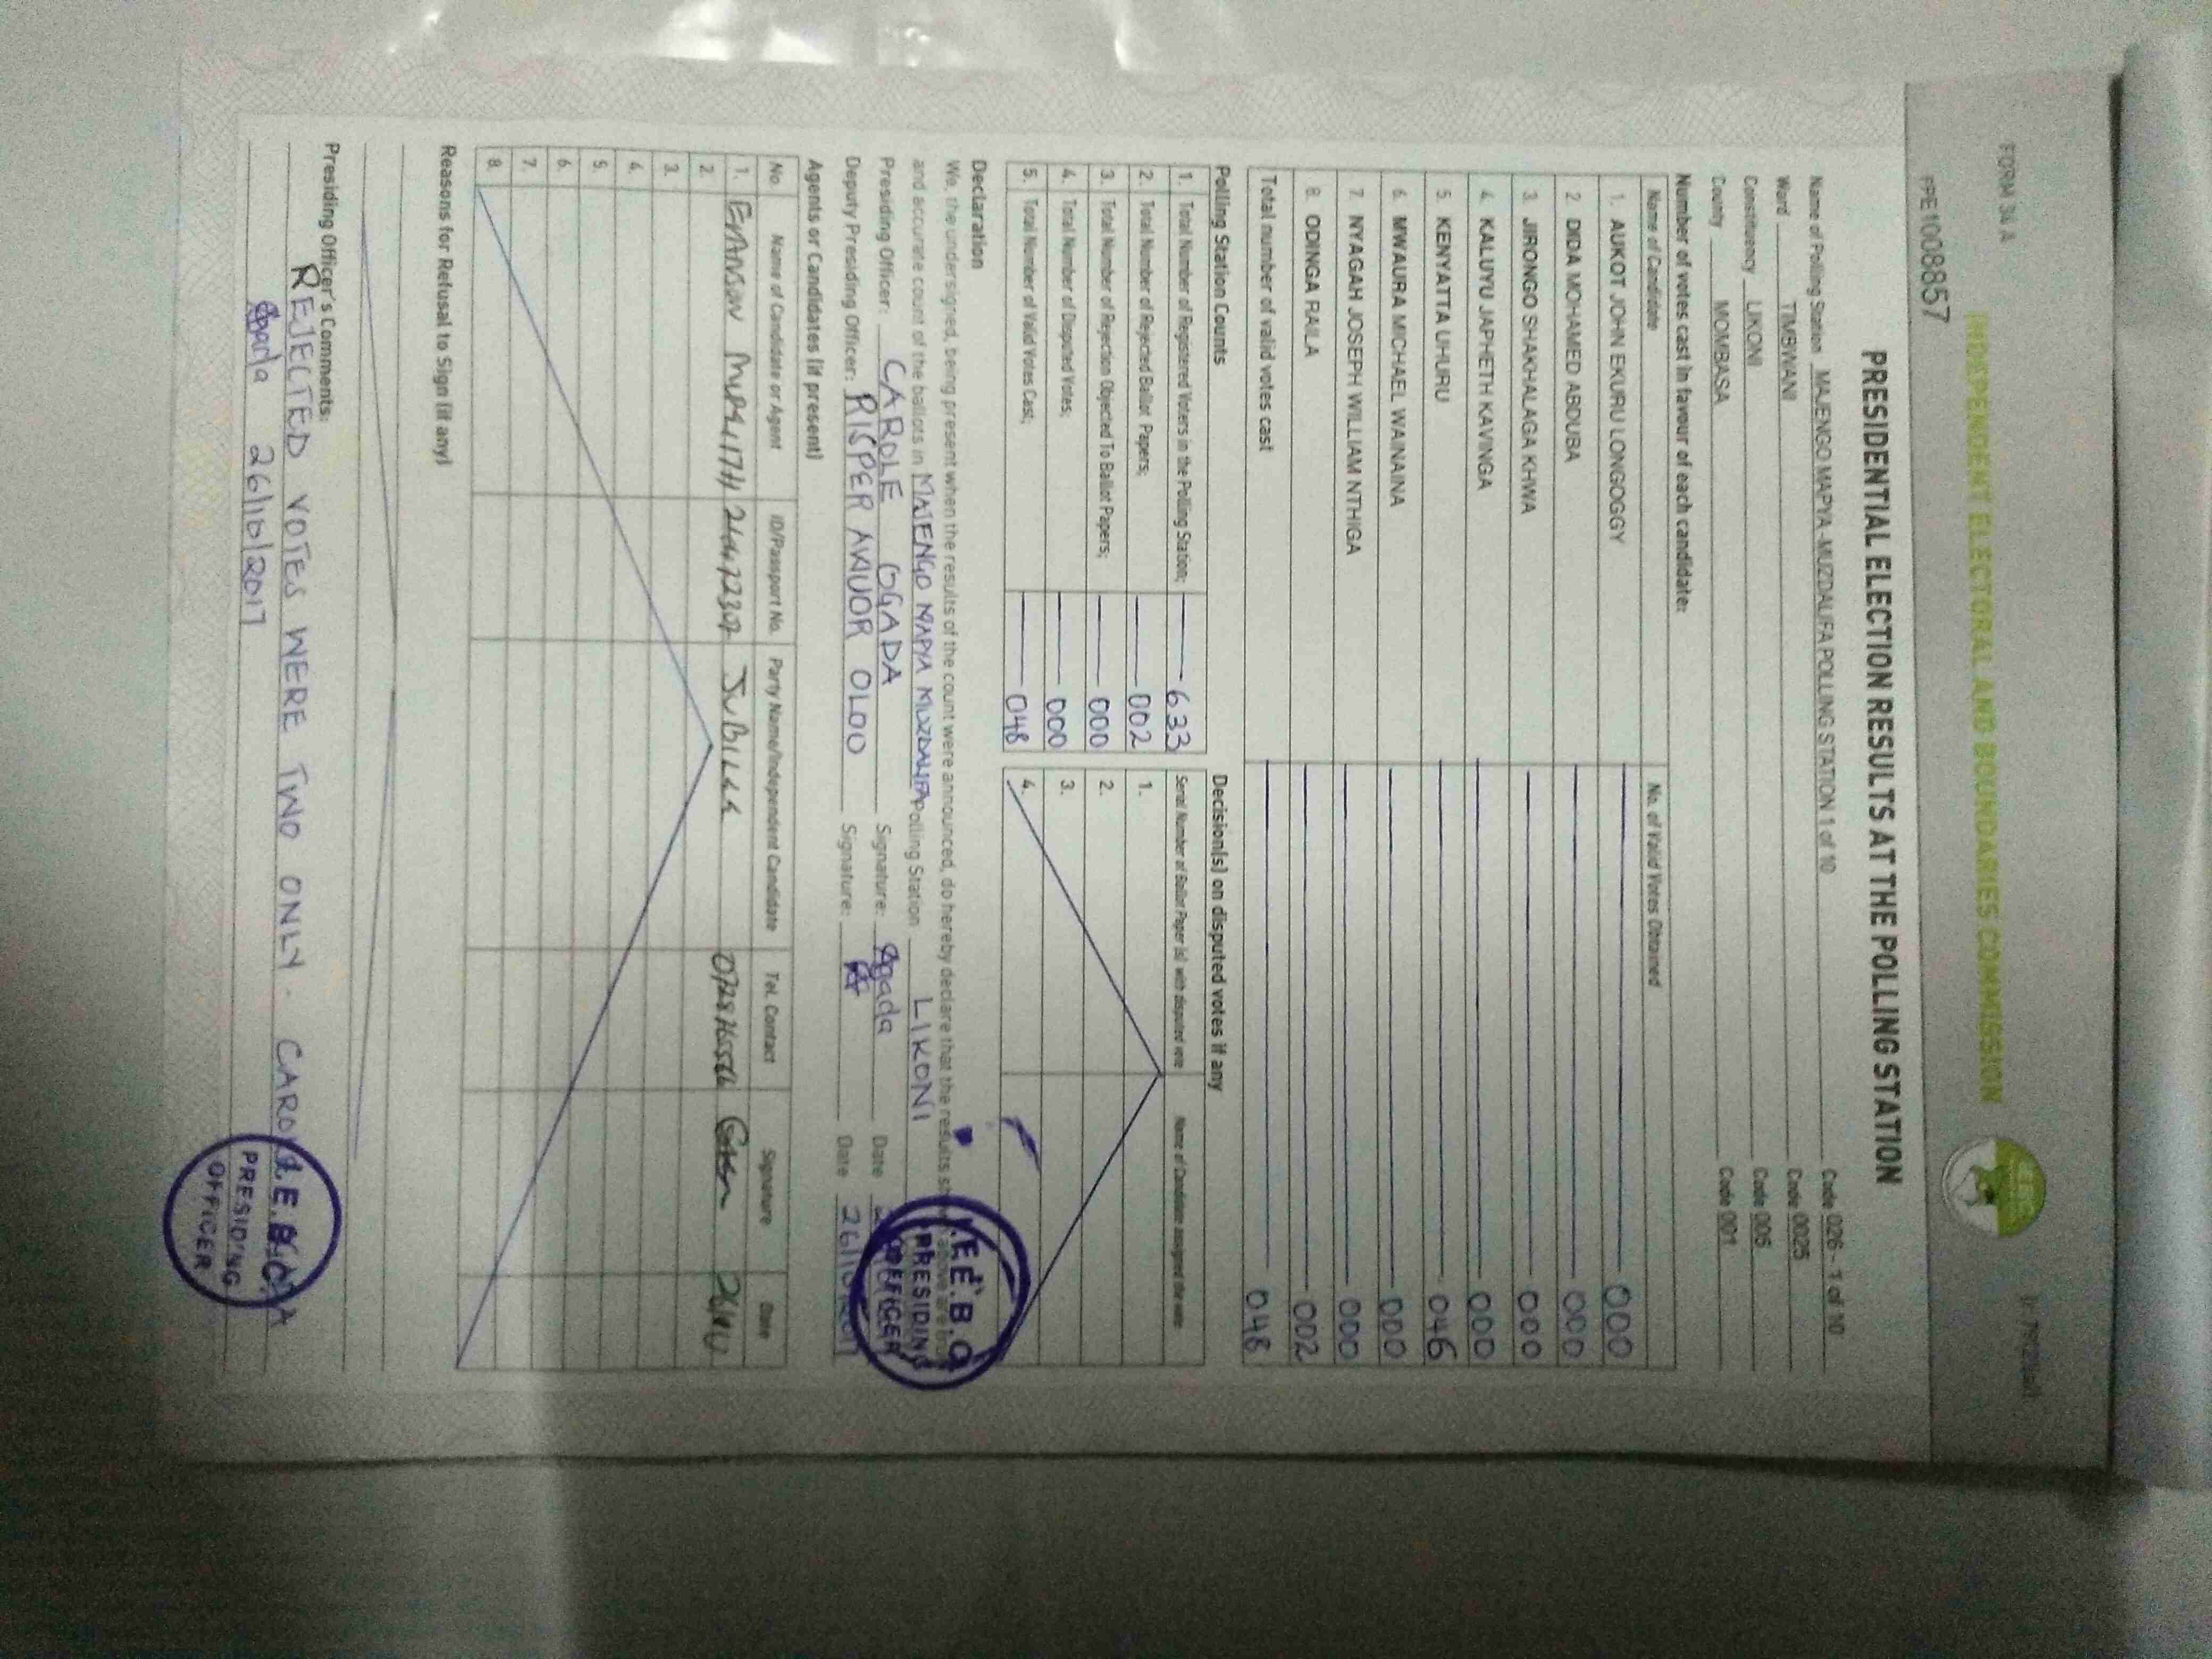 FORM 34 A
INDEPENDENT ELECTORAL AND BOUNDARIES COMMISSION
FPE1008857
PRESIDENTIAL ELECTION RESULTS AT THE POLLING STATION
Name of Polling Station MAJENGO MAPYA -MUZDALIFA POLLING STATION 1 of 10 Code 026 - 1 of 10
Ward TIMBWANI Code 0025
Constituency LIKONI Code 005
County MOMBASA Code 001
Number of votes cast in favour of each candidate:
Name of Candidate No. of Valid Votes Obtained
1. AUKOT JOHN EKURU LONGOGGY 000
2 DIDA MOHAMED ABDUBA 000
3 JIRONGO SHAKHALAGA KHWA 000
4. KALUYU JAPHETH KAVINGA 000
5. KENYATTA UHURU 046
6. MWAURA MICHAEL WAINAINA 000
7. NYAGAH JOSEPH WILLIAM NTHIGA 000
8. ODINGA RAILA 002
Total number of valid votes cast 048
Polling Station Counts
1. Total Number of Registered Voters in the Polling Station; 633
2. Total Number of Rejected Ballot Papers; 002
3. Total Number of Rejection Objected To Ballot Papers; 000
4. Total Number of Disputed Votes; 000
5. Total Number of Valid Votes Cast; 048
Decision(s) on disputed votes if any
Serial Number of Ballot Paper (s) with disputed vote Name of Candidate assigned the vote
1.
2.
3.
4.
Declaration
We, the undersigned, being present when the results of the count were announced, do hereby declare that the results shown above are
and accurate count of the ballots in MAJENGO MAPYA MUZDALIFA Polling Station LIKONI
Presiding Officer: CAROLE OGADA Signature: Ogada Date
Deputy Presiding Officer: RISPER AWUOR OLOO Signature: Date 26/10/2017
I.E.B.C
PRESIDING
OFFICER
Agents or Candidates (if present)
No. Name of Candidate or Agent ID/Passport No. Party Name/Independent Candidate Tel. Contact Signature Date
1. EVANSON JUBILEE
2.
3.
4.
5.
6.
7.
8.
Reasons for Refusal to Sign (if any)
Presiding Officer's Comments:
REJECTED VOTES WERE TWO ONLY. CAROLE OGADA
Ogada 26/10/2017
I.E.B.C
PRESIDING
OFFICER